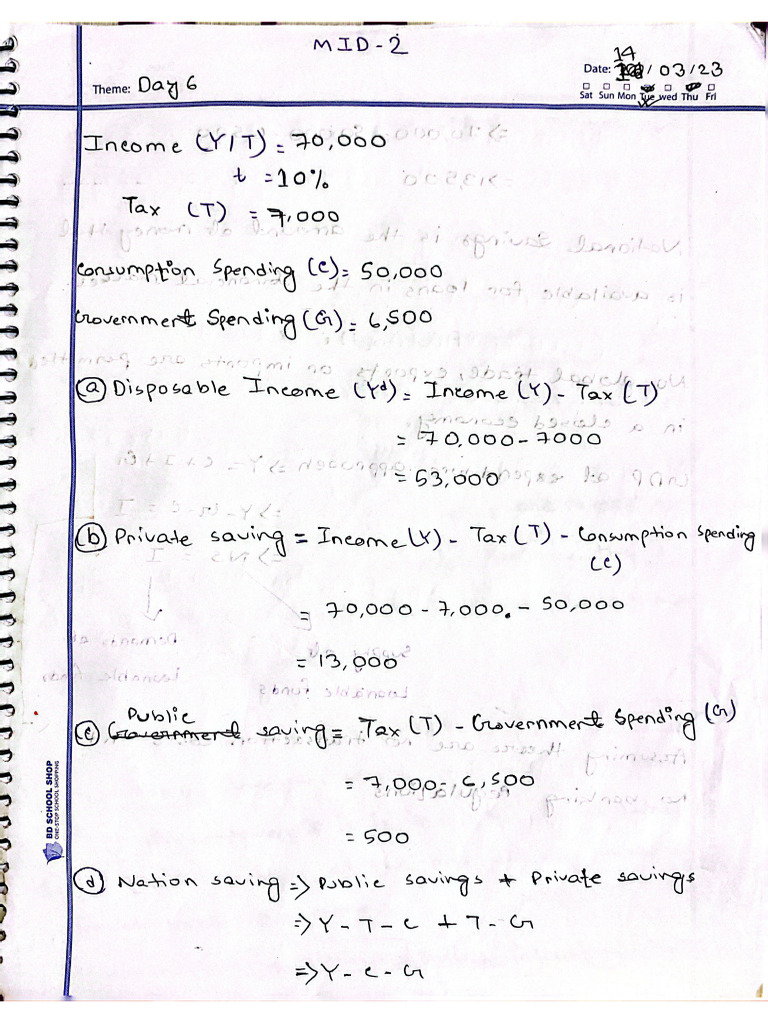 MID-2
14
Date: /03/23
Theme: Day 6
Sat Sun Mon Tue wed Thu Fri
Income (Y/T) = 70,000
t = 10%
Tax (T) = 7,000
Consumption Spending (C) = 50,000
Government Spending (G) = 6,500
(a) Disposable Income (Yd) = Income (Y) - Tax (T)
= 70,000 - 7000
= 53,000
(b) Private saving = Income (Y) - Tax (T) - Consumption Spending
(C)
= 70,000 - 7,000. - 50,000
= 13,000
Public
(c) Government saving = Tax (T) - Government Spending (G)
= 7,000 - 6,500
= 500
(d) Nation saving => Public savings + Private savings
=> Y - T - C + T - G
=> Y - C - G
BD SCHOOL SHOP
ONE-STOP SCHOOL SHOPPING